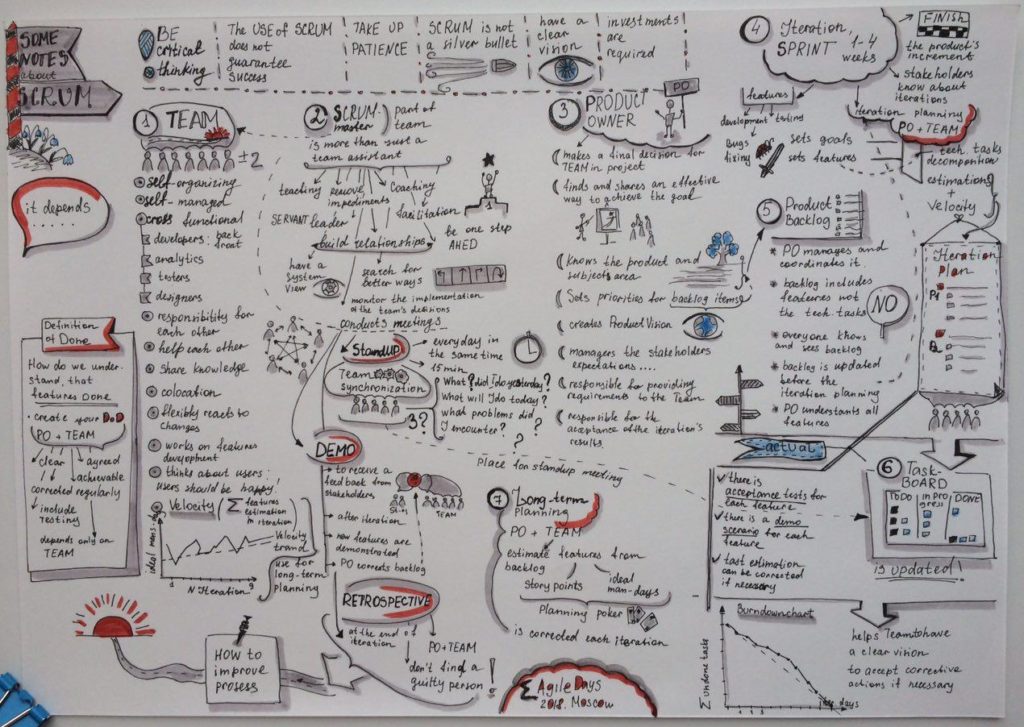 SOME
NOTES
about
SCRUM
BE
critical
thinking
The USE of SCRUM
does not
guarantee
success
TAKE UP
PATIENCE
SCRUM is not
a silver bullet
have a
clear
vision
investments
are
required
it depends
......
1 TEAM
±2
self-organizing
self-managed
cross functional
developers: back
front
analytics
testers
designers
responsibility for
each other
help each other
share knowledge
colocation
flexibly reacts to
changes
works on features
development
thinks about users:
users should be happy!
Velocity
Σ features
estimation
in iteration
Velocity
trand
use for
long-term
planning
N Iteration
Definition
of Done
How do we under-
stand, that
features Done
create your DoD
PO + TEAM
clear
agreed
achievable
corrected regularly
include
testings
depends only on
TEAM
HOW to
improve
prosess
2 SCRUM-
master
part of
team
is more than just a
team assistant
teaching
remove
impediments
Coaching
facilitation
SERVANT leader
build relationships
be one step
AHED
have a
System
View
search for
better ways
monitor the implementation
of the team's decisions
conducts meetings
Standup
everyday in
the same time
15 min
Team
synchronization
What did I do yesterday?
What will I do today?
what problems did
I encounter?
3?
Place for standup meeting
DEMO
to receive a
feed back from
stakeholders
TEAM
after iteration
new features are
demonstrated
PO corrects backlog
RETROSPECTIVE
at the end of
iteration
PO+TEAM
don't find a
guilty person!
3 PRODUCT
OWNER
PO
makes a final decision for
TEAM in project
finds and shares an effective
way to achieve the goal
knows the product and
subjects area
Sets priorities for backlog items
creates Product Vision
managers the stakeholders
expectations....
responsible for providing
requirements to the Team
responsible for the
acceptance of the iteration's
results
7 Long-term
planning
PO + TEAM
estimate features from
backlog
Story points
ideal
man-days
Planning poker
is corrected each iteration
Σ Agile Days
Moscow
4 Iteration,
SPRINT 1-4
weeks
FINISH
the product's
increment
stakeholders
know about
iterations
features
development
testing
Bugs
fixing
Iteration planning
PO + TEAM
sets goals
sets features
tech. tasks
decomposition
estimations
Velocity
Iteration
Plan
5 Product
Backlog
PO manages and
coordinates it
backlog includes
features not
the tech. tasks
NO
everyone knows
and sees backlog
backlog is updated
before the
iteration planning
PO understants all
features
actual
there is
acceptance tests for
each feature
there is a demo
scenario for each
feature
task estimation
can be corrected
if necessary
6 Task-
BOARD
ToDo
in Pro
gress
DONE
is updated!
Burndownchart
Σ undone tasks
days
helps Team to have
a clear vision
to accept corrective
actions if necessary